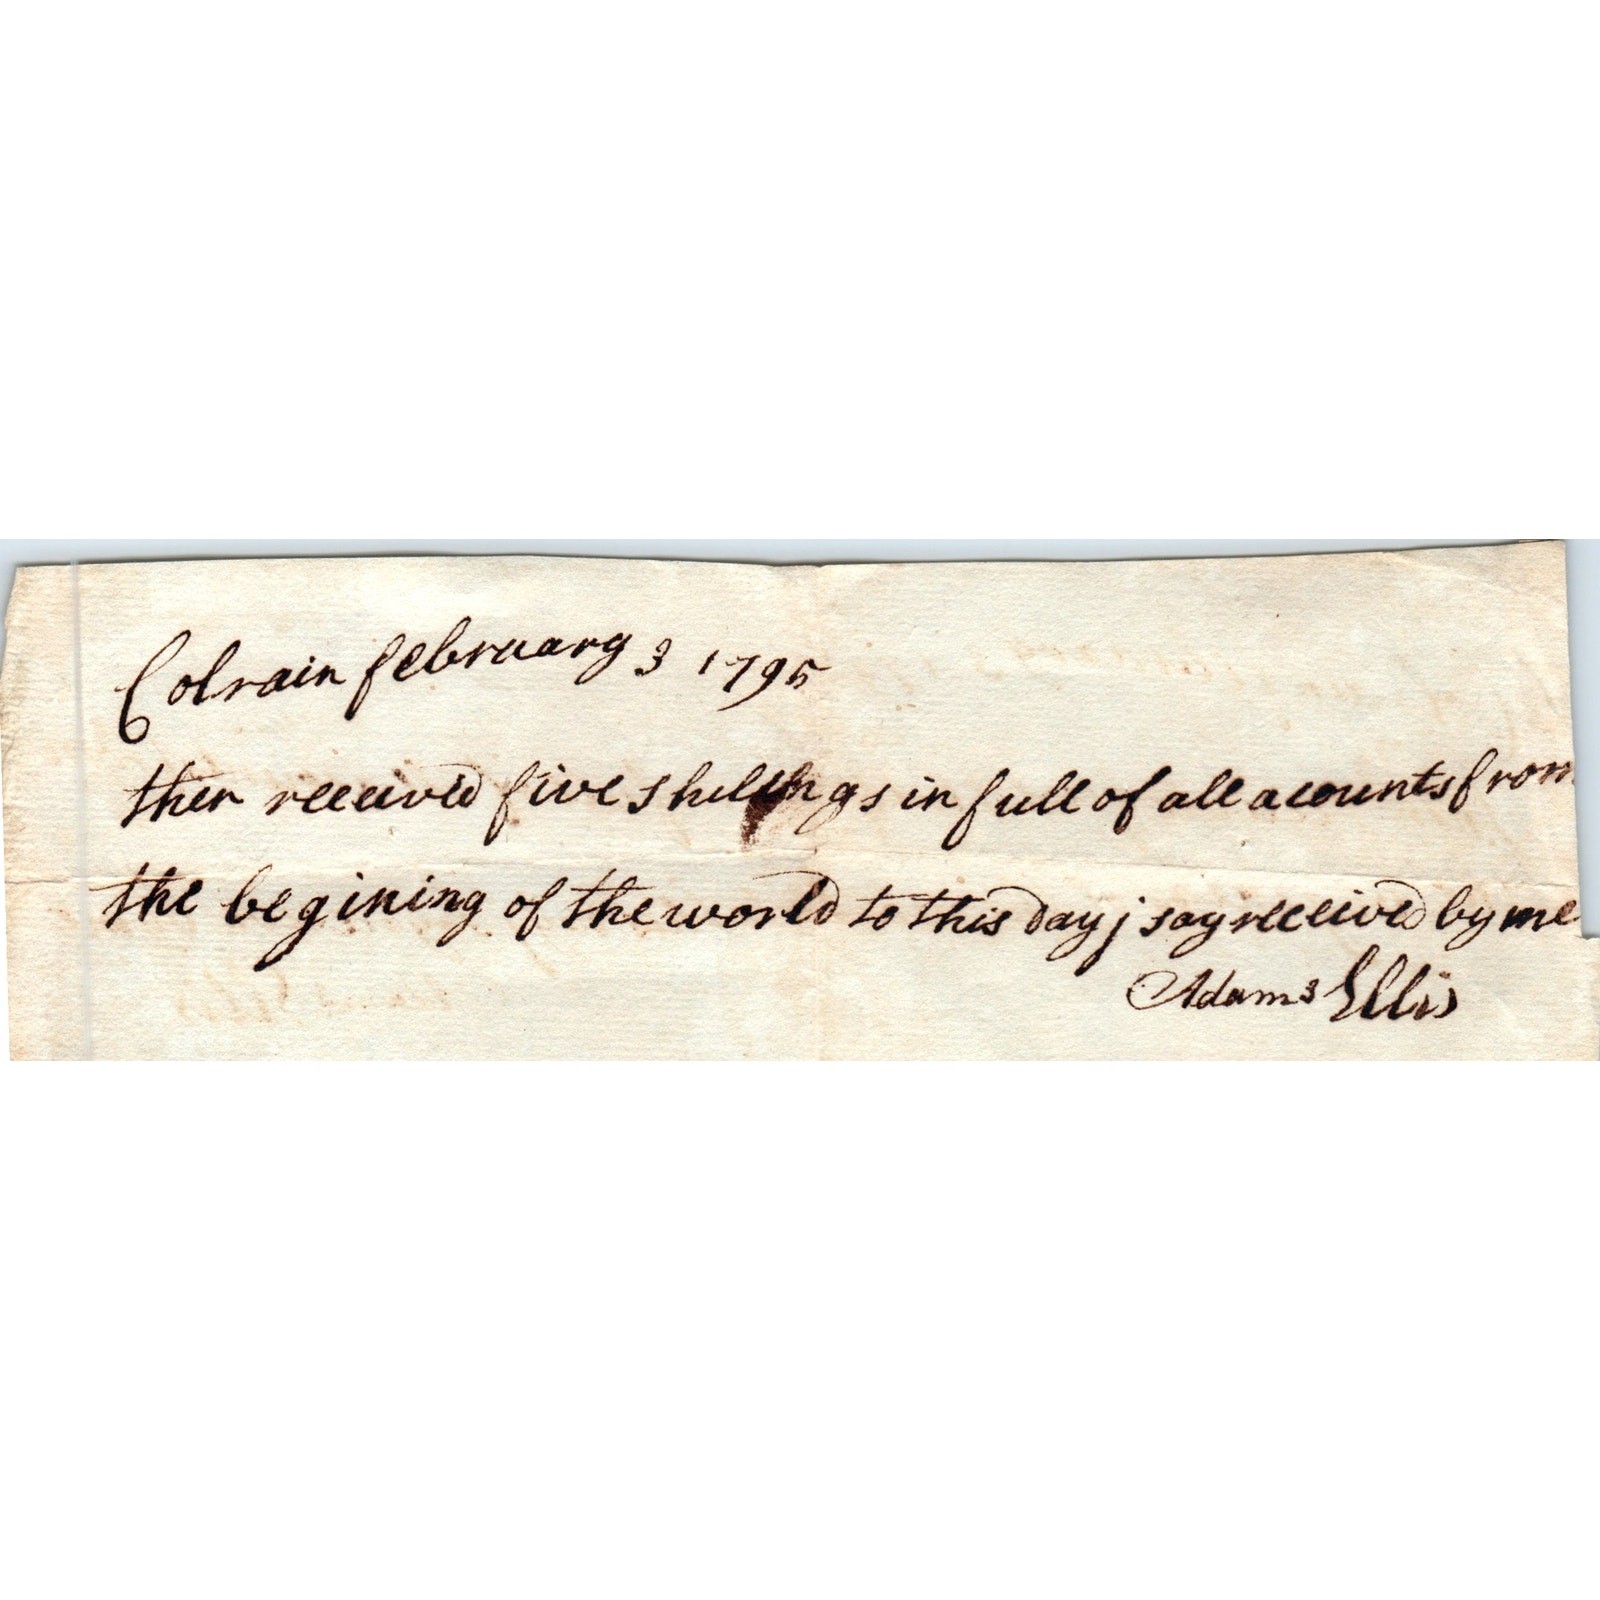 Colrain february 3 1795
then received five shillings in full of all acounts from
the begining of the world to this day j say received by me
Adams Ellis